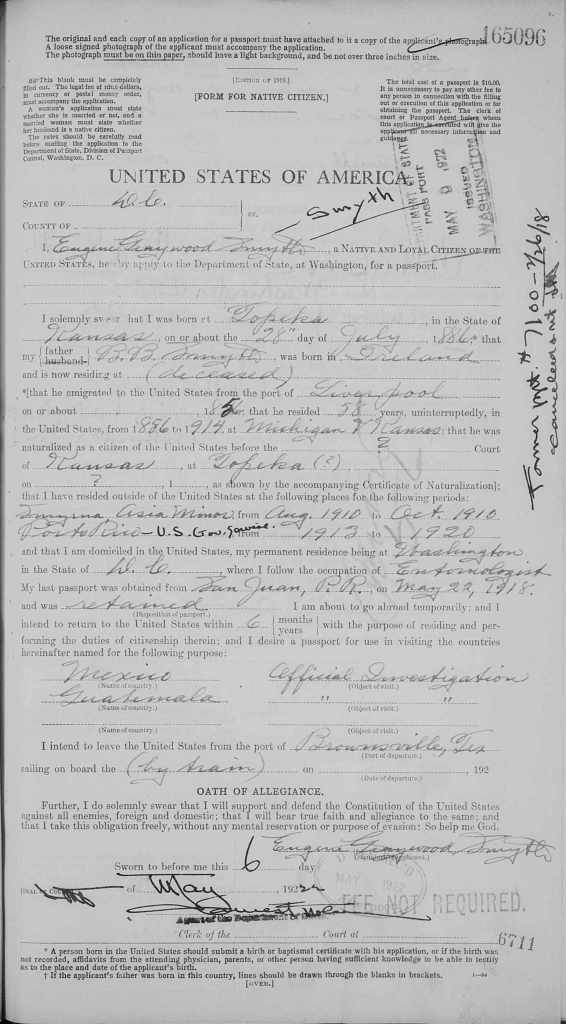 165096
The original and each copy of an application for a passport must have attached to it a copy of the applicant's photograph.
A loose signed photograph of the applicant must accompany the application.
The photograph must be on this paper, should have a light background, and be not over three inches in size.
This blank must be completely
filled out. The legal fee of nine dollars,
in currency or postal money order,
must accompany the application.
A woman's application must state
whether she is married or not, and a
married woman must state whether
her husband is a native citizen.
The rules should be carefully read
before mailing the application to the
Department of State, Division of Passport
Control, Washington, D. C.
[EDITION OF 1919.]
[FORM FOR NATIVE CITIZEN.]
The total cost of a passport is $10.00.
It is unnecessary to pay any other fee to
any person in connection with the filling
out or execution of this application or for
obtaining the passport. The clerk of
court or Passport Agent before whom
this application is executed will give the
applicant all necessary information and
guidance.
DEPARTMENT OF STATE
PASSPORT
MAY 9 1922
ISSUED
WASHINGTON
UNITED STATES OF AMERICA.
STATE OF D.C.
COUNTY OF
ss.
Smyth
I, Eugene Graywood Smyth, a NATIVE AND LOYAL CITIZEN OF THE
UNITED STATES, hereby apply to the Department of State, at Washington, for a passport.
I solemnly swear that I was born at Topeka, in the State of
Kansas, on or about the 28" day of July, 1886; that
my {father husband} B. B. Smyth, was born in Ireland
and is now residing at (deceased)
*[that he emigrated to the United States from the port of Liverpool
on or about 1856; that he resided 58 years, uninterruptedly, in
the United States, from 1856 to 1914, at Michigan & Kansas; that he was
naturalized as a citizen of the United States before the Court
of Kansas, at Topeka (?)
on ?, 1, as shown by the accompanying Certificate of Naturalization];
that I have resided outside of the United States at the following places for the following periods:
Smyrna, Asia Minor, from Aug. 1910 to Oct. 1910
Porto Rico - U.S. Gov. Service. from 1913 to 1920
and that I am domiciled in the United States, my permanent residence being at Washington
in the State of D. C., where I follow the occupation of Entomologist
My last passport was obtained from San Juan, P.R., on May 22, 1918.
and was retained I am about to go abroad temporarily; and I
(Disposition of passport.)
intend to return to the United States within 6 {months years} with the purpose of residing and per-
forming the duties of citizenship therein; and I desire a passport for use in visiting the countries
hereinafter named for the following purpose:
Mexico Official Investigation
(Name of country.) (Object of visit.)
Guatemala " "
(Name of country.) (Object of visit.)
(Name of country.) (Object of visit.)
I intend to leave the United States from the port of Brownsville, Tex
(Port of departure.)
sailing on board the (by train) on , 192
(Date of departure.)
OATH OF ALLEGIANCE.
Further, I do solemnly swear that I will support and defend the Constitution of the United States
against all enemies, foreign and domestic; that I will bear true faith and allegiance to the same; and
that I take this obligation freely, without any mental reservation or purpose of evasion: So help me God.
Eugene Graywood Smyth
(Signature of applicant.)
Sworn to before me this 6 day
of May, 1922
FEE NOT REQUIRED.
Agent of the Department of State
Clerk of the Court at
6711
* A person born in the United States should submit a birth or baptismal certificate with his application, or if the birth was
not recorded, affidavits from the attending physician, parents, or other person having sufficient knowledge to be able to testify
as to the place and date of the applicant's birth.
† If the applicant's father was born in this country, lines should be drawn through the blanks in brackets.
[OVER.]
Former ppt. # 7100-2/26/18